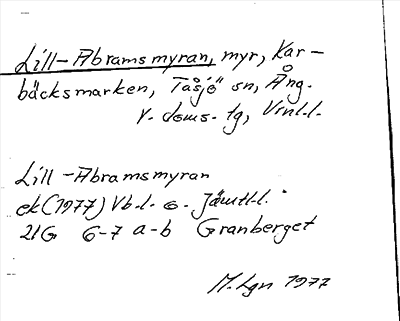 Lill-Abramsmyran, myr, Kar-
bäcksmarken, Tåsjö sn, Ång.
V. doms. tg, Vnl.l.
Lill-Abramsmyran
ek (1977) Vb.l. o. Jämtl.l.
21G 6-7 a-b Granberget
M. Lgn 1977